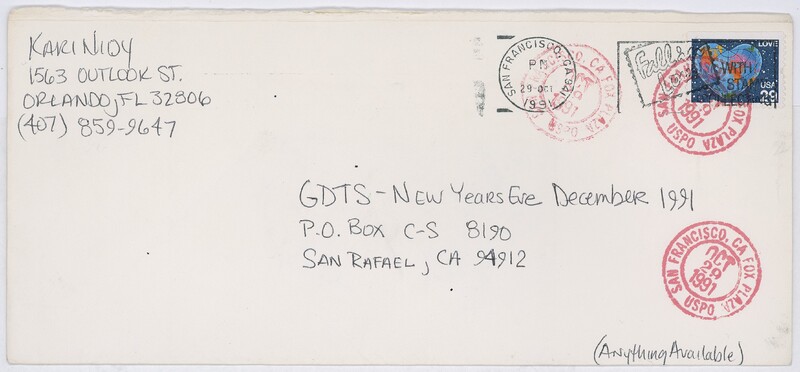 KARI NIDY
1563 OUTLOOK ST.
ORLANDO, FL 32806
(407) 859-9647
SAN FRANCISCO, CA 941
PM
29 OCT
1991
SAN FRANCISCO, CA FOX PLAZA
USPO
1991
LOVE
WITH
STAMP
USA 29
SAN FRANCISCO, CA FOX PLAZA
1991
USPO
GDTS - NEW YEARS EVE DECEMBER 1991
P.O. BOX C-S 8190
SAN RAFAEL, CA 94912
SAN FRANCISCO, CA FOX PLAZA
OCT
29
1991
USPO
(Anything Available)